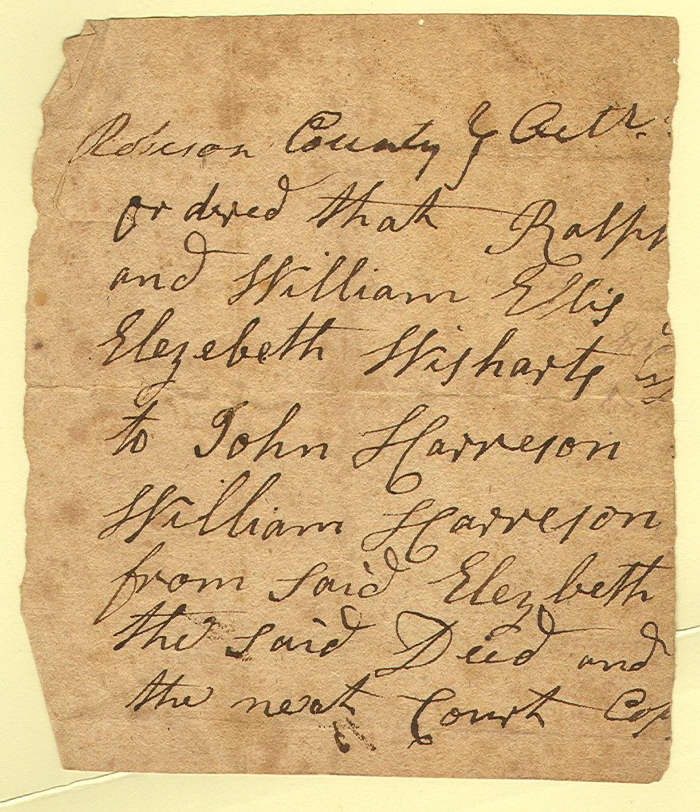 Robeson County } Octr.
ordered that Ralph
and William Ellis
Elezebeth Wisharts
to John Harreson
William Harreson
from said Elezbeth
the said Deed and
the next Court Cop